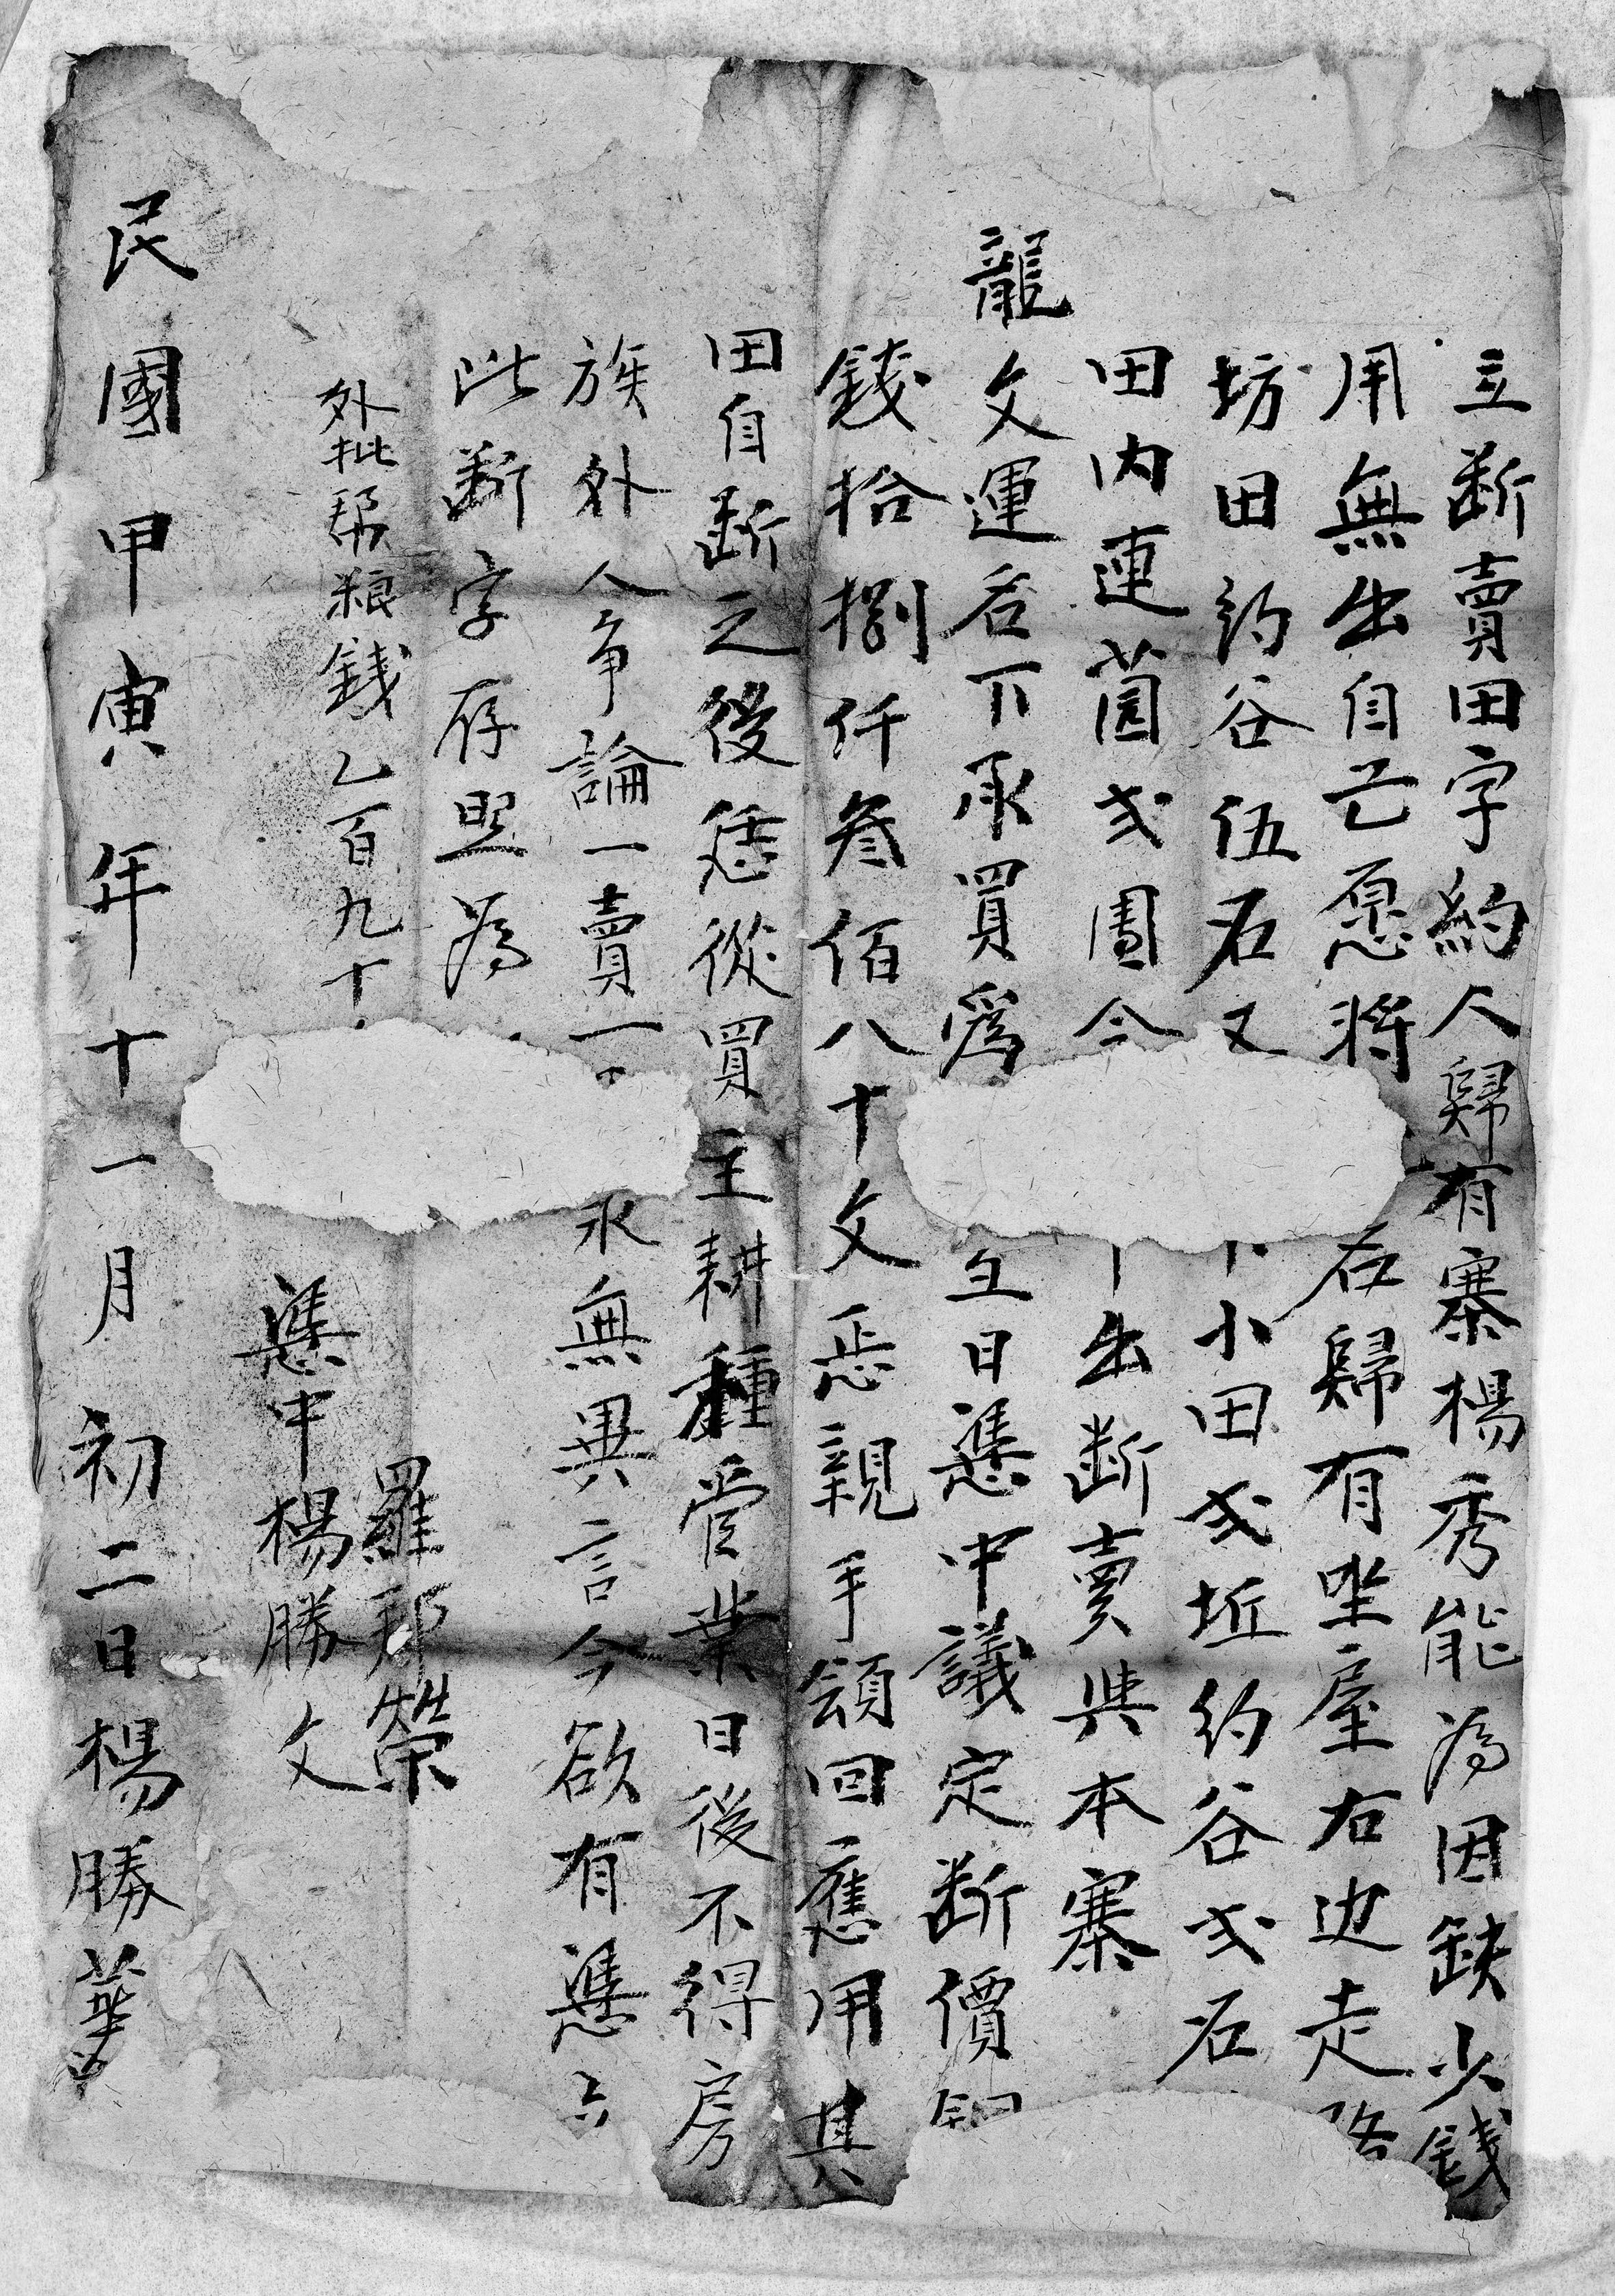 立断賣田字約人歸有寨楊秀能為因缺少錢
用無出自己愿将右歸有坐屋右边走路
坊田約谷伍石又小田弍坵約谷弍石
田内連茵弍團今出断賣與本寨
龍文運名下承買爲業即日憑中議定断價銅
錢拾捌仟叁佰八十文恁親手領回應用其
田自断之後恁從買主耕種管業日後不得房
族外人争論一賣一永無異言今欲有憑立
此断字存照為
外批帮粮錢乙百九十
羅邦榮
憑中楊勝文
民國甲寅年十一月初二日楊勝華